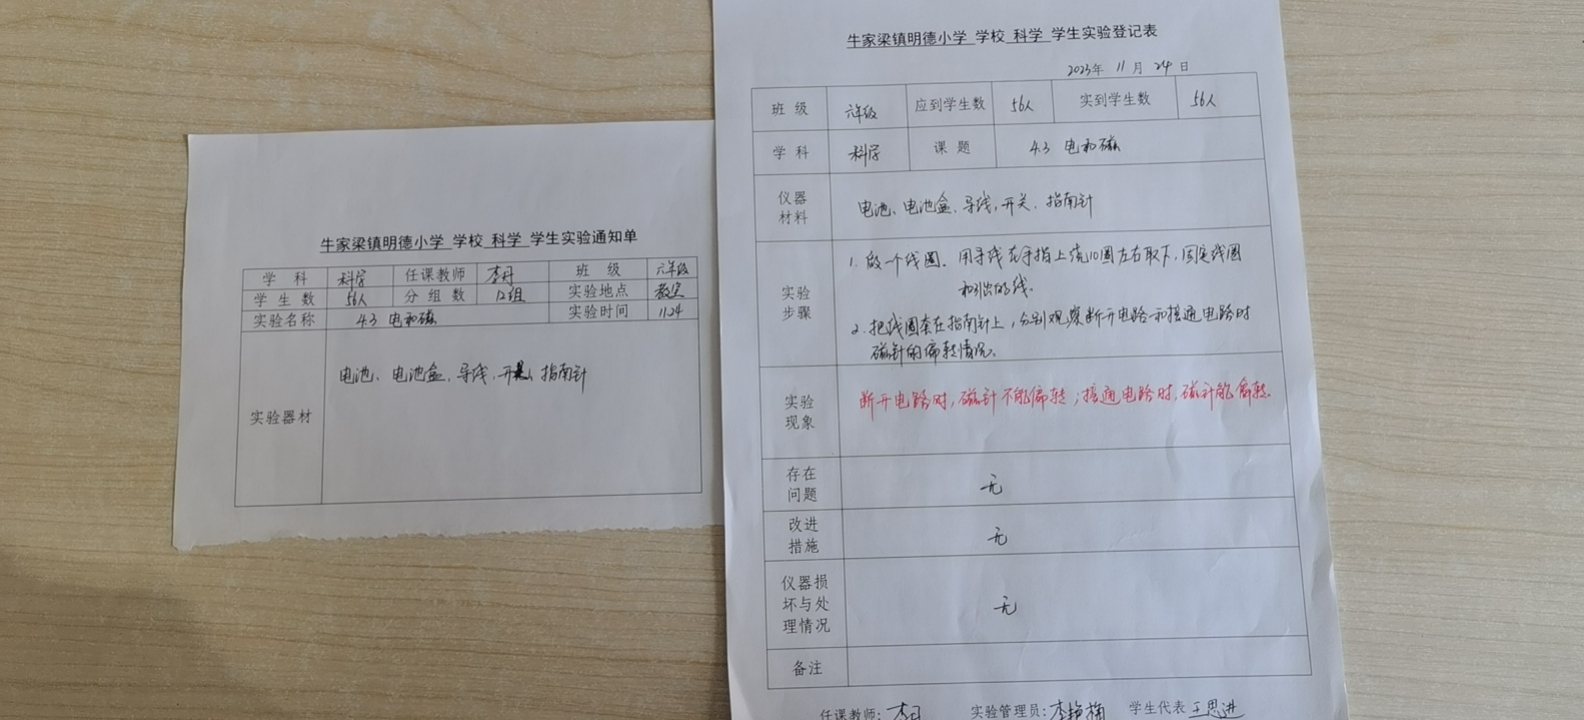 牛家梁镇明德小学 学校 科学 学生实验通知单
学 科 科学 任课教师 李丹 班 级 六年级
学生数 56人 分组数 12组 实验地点 教室
实验名称 4.3 电和磁 实验时间 11.24
实验器材 电池、电池盒、导线、开关、指南针
牛家梁镇明德小学 学校 科学 学生实验登记表
2023年 11月 24日
班 级 六年级 应到学生数 56人 实到学生数 56人
学 科 科学 课 题 4.3 电和磁
仪器
材料 电池、电池盒、导线、开关、指南针
实验
步骤
1. 做一个线圈。用导线在手指上绕10圈左右取下,固定线圈
和引出的线。
2. 把线圈套在指南针上,分别观察断开电路和接通电路时
磁针的偏转情况。
实验
现象
断开电路时,磁针不能偏转;接通电路时,磁针能偏转。
存在
问题 无
改进
措施 无
仪器损
坏与处
理情况 无
备注
任课教师:李丹 实验管理员:李 学生代表 王思进